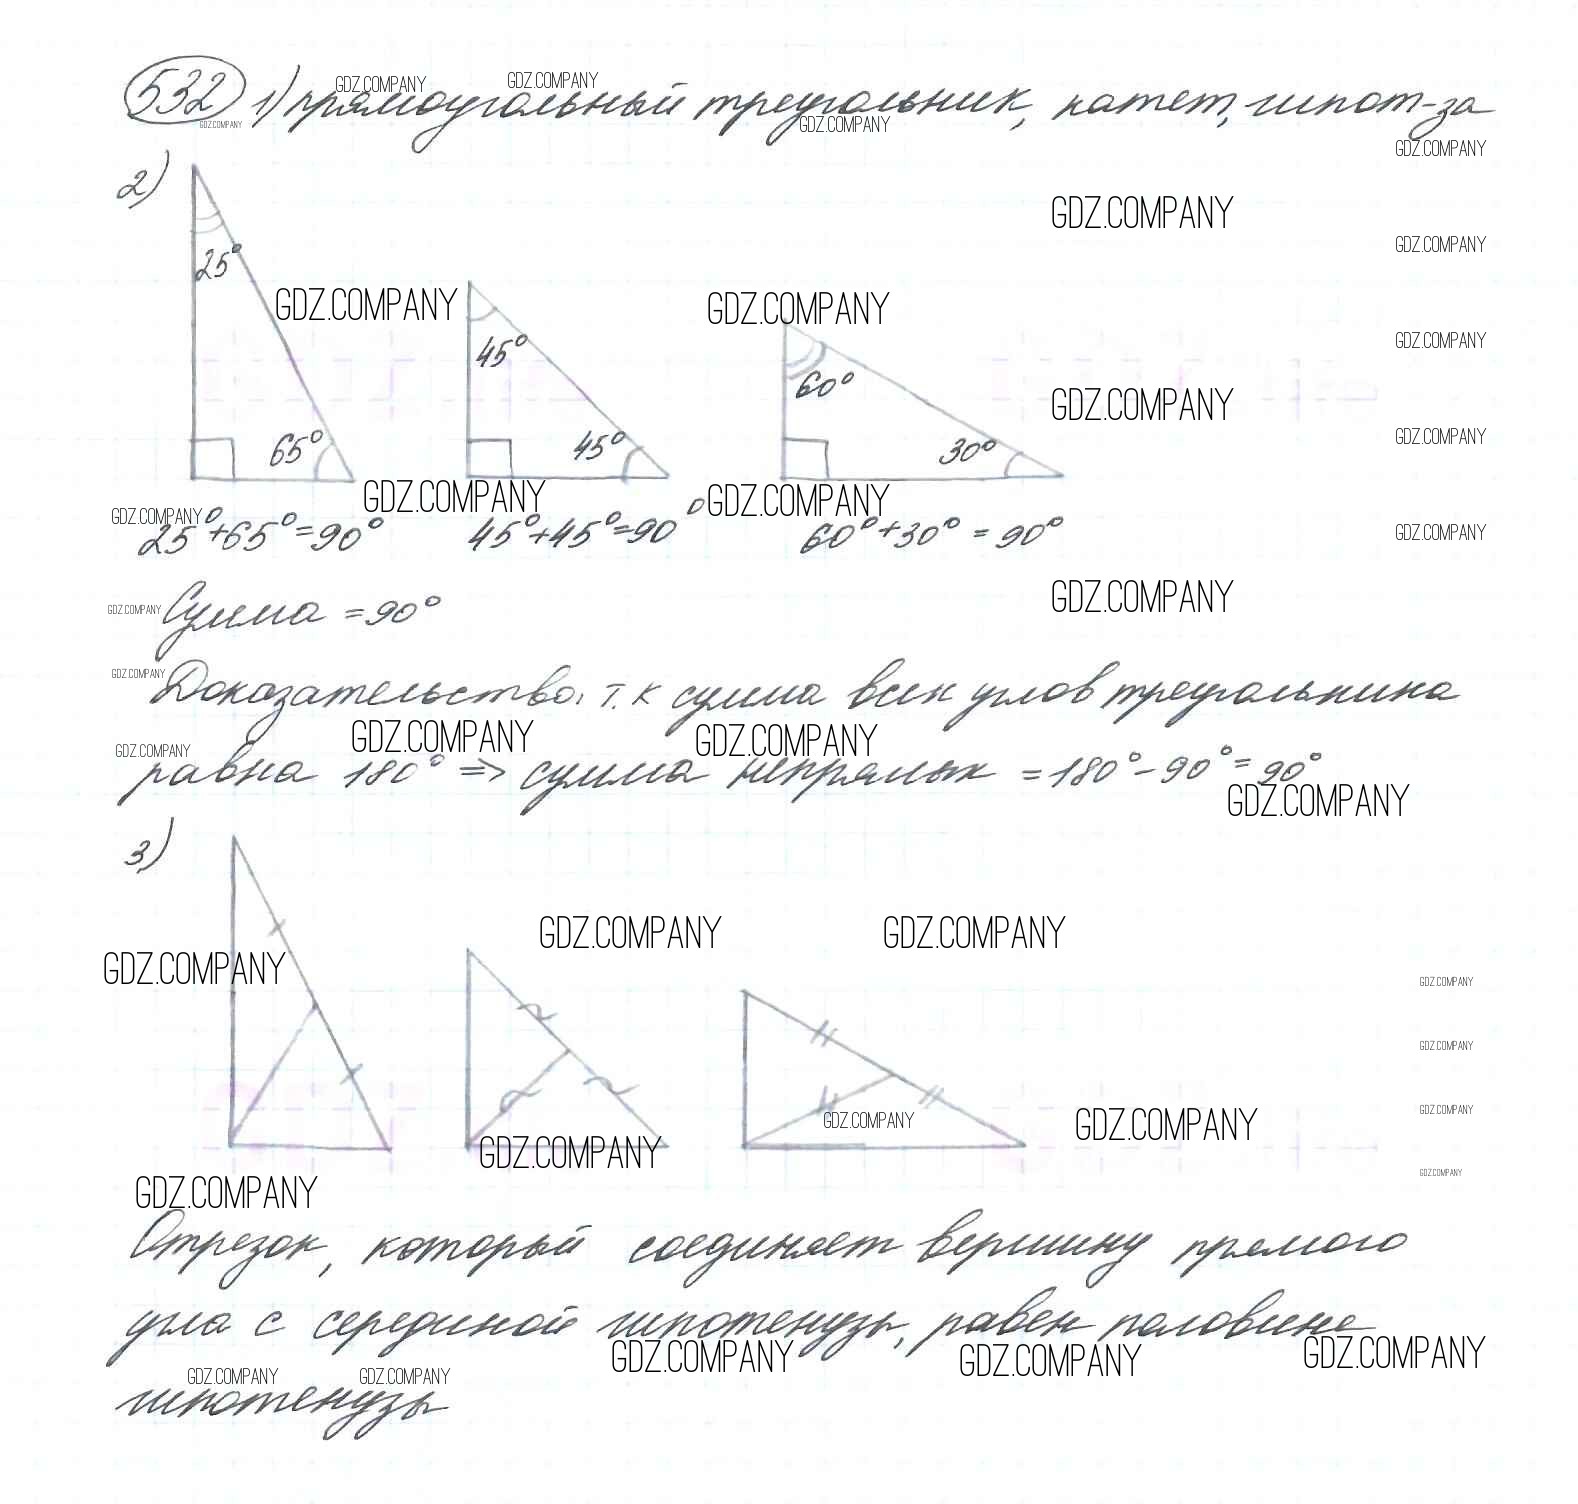 532 1) прямоугольный треугольник, катет, гипот-за
2)
25° 65°
45° 45°
60° 30°
25°+65°=90° 45°+45°=90° 60°+30°=90°
Сумма =90°
Доказательство: т.к сумма всех углов треугольника
равна 180° => сумма непрямых =180°-90°=90°
3)
Отрезок, который соединяет вершину прямого
угла с серединой гипотенузы, равен половине
гипотенузы
GDZ.COMPANY